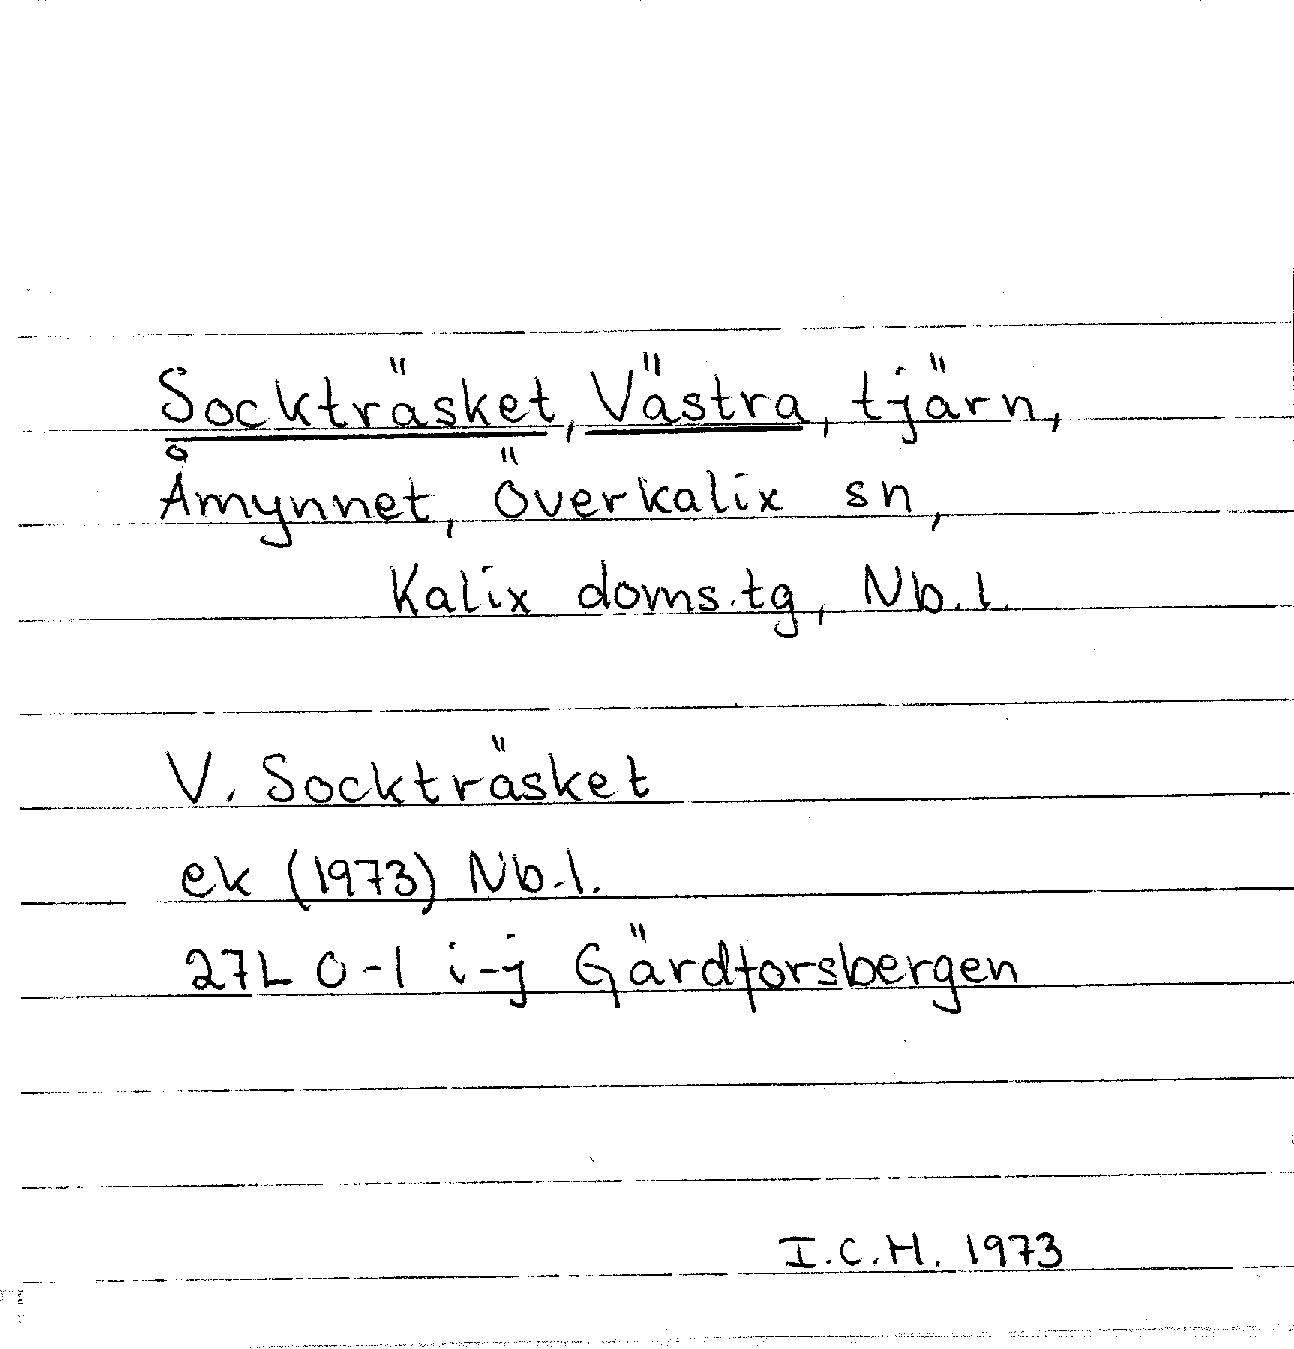 Sockträsket, Västra, tjärn,
Åmynnet, Överkalix sn,
Kalix doms.tg, Nb.l.
V. Sockträsket
ek (1973) Nb.l.
27L 0-1 i-j Gärdforsbergen
I.C.H. 1973